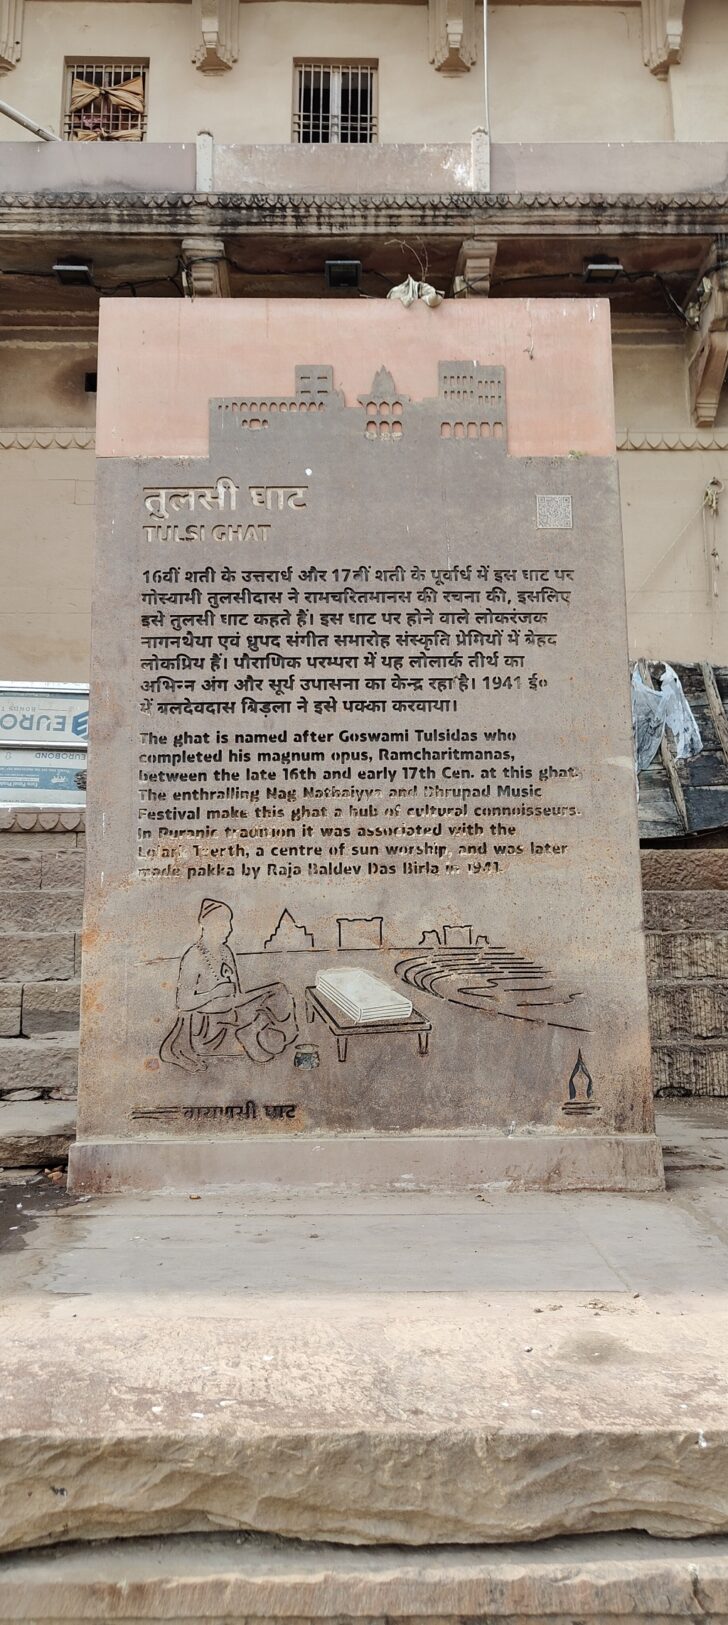 तुलसी घाट
TULSI GHAT
16वीं शती के उत्तरार्ध और 17वीं शती के पूर्वार्ध में इस घाट पर
गोस्वामी तुलसीदास ने रामचरितमानस की रचना की, इसलिए
इसे तुलसी घाट कहते हैं। इस घाट पर होने वाले लोकरंजक
नागनथैया एवं ध्रुपद संगीत समारोह संस्कृति प्रेमियों में बेहद
लोकप्रिय हैं। पौराणिक परम्परा में यह लोलार्क तीर्थ का
अभिन्न अंग और सूर्य उपासना का केन्द्र रहा है। 1941 ई०
में बलदेवदास बिड़ला ने इसे पक्का करवाया।
The ghat is named after Goswami Tulsidas who
completed his magnum opus, Ramcharitmanas,
between the late 16th and early 17th Cen. at this ghat.
The enthralling Nag Nathaiyya and Dhrupad Music
Festival make this ghat a hub of cultural connoisseurs.
In Puranic tradition it was associated with the
Lolark Teerth, a centre of sun worship, and was later
made pakka by Raja Baldev Das Birla in 1941.
वाराणसी घाट
EURO
EUROBOND